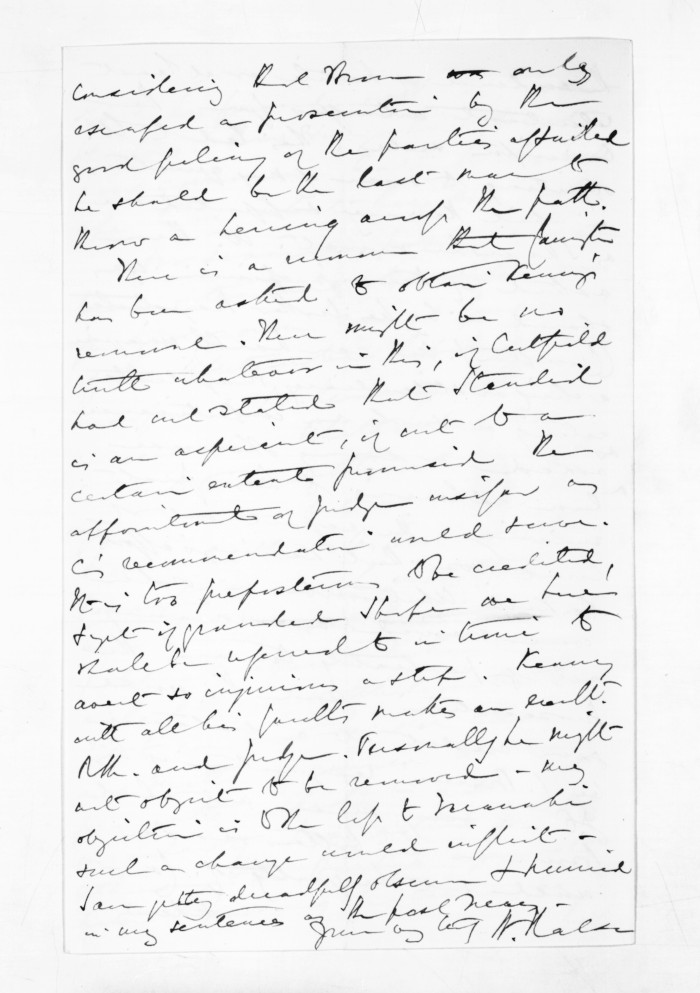 Considering that Brown was only
escaped a prosecution by the
good feeling of the parties assailed
he should be the last man to
throw a herring across the path.
There is a rumour that
has been asked to obtain Kenny's
removal. There might be no
truth whatever in this, if Cutfield
had not stated that Standish
is an aspirant, if not to a
certain extent promised the
appointment of judge as
C's recommendation would serve.
It is too preposterous to be credited,
& yet if grounded I hope we here
shall be referred to in time to
avert so injurious a step. Kenny
with all his faults makes an excellt.
R.M. and judge. Personally he might
not object to be removed - my
objection is to the loss to Taranaki
such a change would inflict -
I am getting dreadfully obscure & hurried
in my sentences as the post nears -
W. Halse